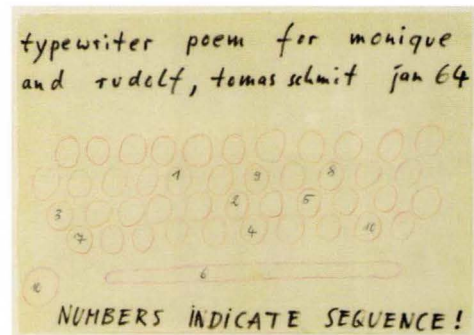 typewriter poem for monique
and rudolf, tomas schmit jan 64
1 9 8
2 5
3
7 4 10
6
NUMBERS INDICATE SEQUENCE!